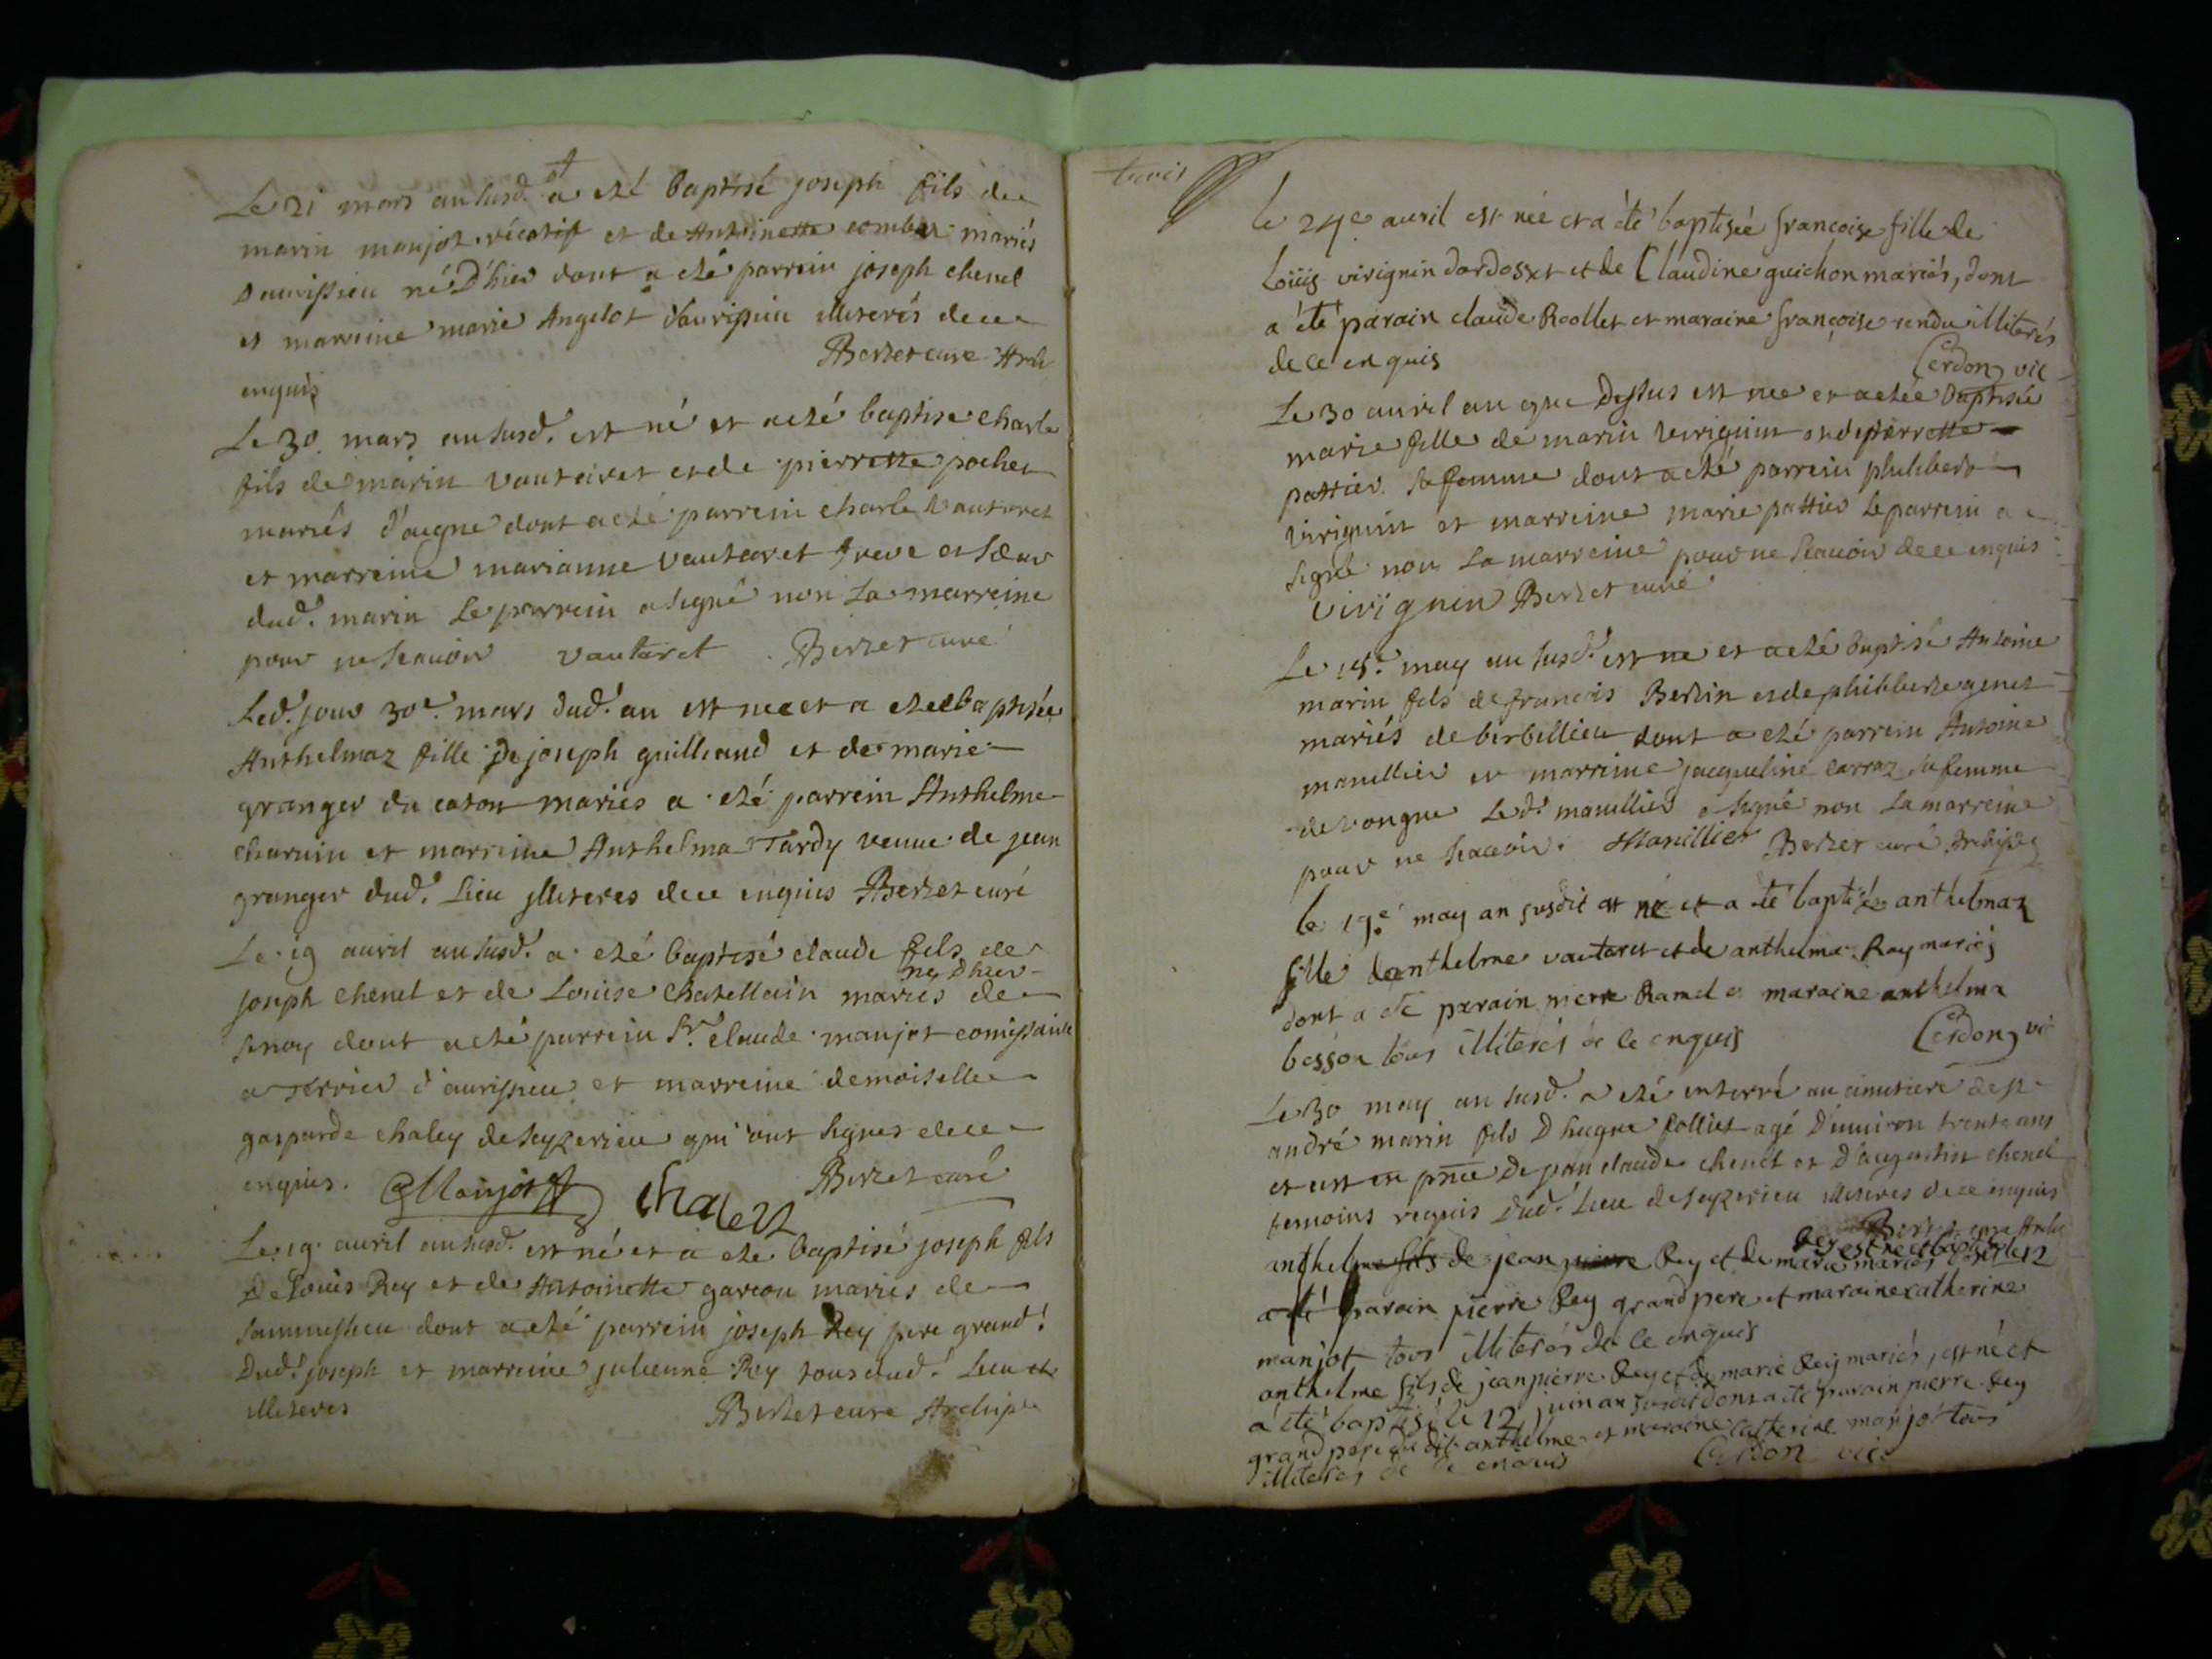 Le 21 mars an susd. a eté baptisé joseph fils de
marin manjot et de Antoinette combet mariés
D'aurissieu né D'hier dont a eté parrein joseph chenel
et marreine marie Angelot d'aurissieu illiterés de ce
Berret curé Arch
enquis
Le 30. mars an susd. est né et a eté baptise charle
fils de marin vautaret et de pierrette pochet
mariés d'augne dont a eté parrein charle vautaret
et marreine marianne vautaret frere et sœur
dud. marin Le parrein a signé non La marreine
pour ne scauoir vautaret Berret curé
Led. jour 30e. mars dud. an est nee et a eteé baptisée
Anthelmaz fille De joseph guilliand et de marie
granger du caton mariés a eté parrein Anthelme
charuin et marreine Anthelma Tardy veuue de jean
granger dud. Lieu illiteres de ce enquis Berret curé
Le 19 auril an susd. a eté baptisé claude fils de
né D'hier
joseph chenel et de Louise Chatellain mariés de
senoy dont a eté parrein Sr. claude manjot comissaire
a terrier d'aurissieu et marreine demoiselle
gasparde chaley de seyzerieu qui ont signes de ce
enquis. Manjot chaley Berret curé
Le 19. auril an susd. est né et a eté baptisé joseph fils
De Louis Rey et de Antoinette garcon mariés de
sammessieu dont a eté parrein joseph Rey pere grand
Dud. joseph et marreine julienne Rey tous dud. Lieu et
illiteres Berret cure Archip
trois
le 24e auril est née et a été baptisée françoise fille de
Loüis virignin d'ardosxt et de Claudine guichon mariés, dont
a été parain claude Roollet et maraine françoise rendu illiterés
de ce enquis Cerdon vic
Le 30 auril an que Dessus est nee et a etée baptisée
marie fille de marin virignin et de pierrette
pattier sa femme dont a eté parrein philibert
virignin et marreine marie pattier Le parrein a
signé non La marreine pour ne scauoir de ce enquis
virignin Berret curé
Le 15e. may an susd. est né et a eté baptisé Antoine
marin fils de francois Bertin et de philiberte genet
mariés de berbillieu dont a eté parrein Antoine
manillier et marreine jacqueline carraz sa femme
de vongne Led. manillier a signé non La marreine
pour ne scauoir. Manillier Berret curé Archip
le 19e may an susdit est né et a été baptisée anthelmaz
fille danthelme vautaret et de anthelma Rey mariés
dont a été parain pierre Ramel et maraine anthelma
besson tous illiterés de ce enquis Cerdon vic
Le 30 may an susd. a eté enterré au cimetiere de st
andré marin fils D'hugue folliet agé D'enuiron trente ans
et est en pnce De jean claude chenel et d'augustin chenel
temoins requis Dud. Lieu de seyzerieu illiteres de ce enquis
Berret cure Archi
anthelme fils de jean pierre Rey et de marie Rey est né et baptisé mariés le 12
a été parain pierre Rey grand pere et maraine catherine
manjot tous illiterés de ce enquis
anthelme fils de jean pierre Rey et de marie Reÿ mariés, est né et
a été baptisé le 12 juin an susdit dont a été parain pierre Rey
grand pere du dit anthelme et maraine catherine manjot tous
illiterés de ce enquis Cerdon vic